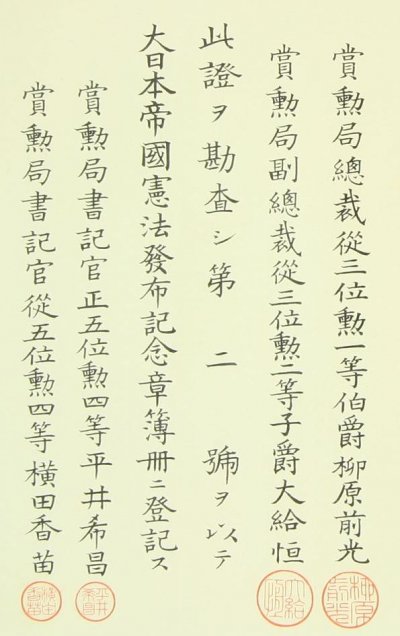 賞勲局總裁從三位勲一等伯爵柳原前光
賞勲局副總裁從三位勲二等子爵大給恒
此證ヲ勘査シ第二號ヲ以テ
大日本帝國憲法發布記念章簿冊ニ登記ス
賞勲局書記官正五位勲四等平井希昌
賞勲局書記官從五位勲四等横田香苗